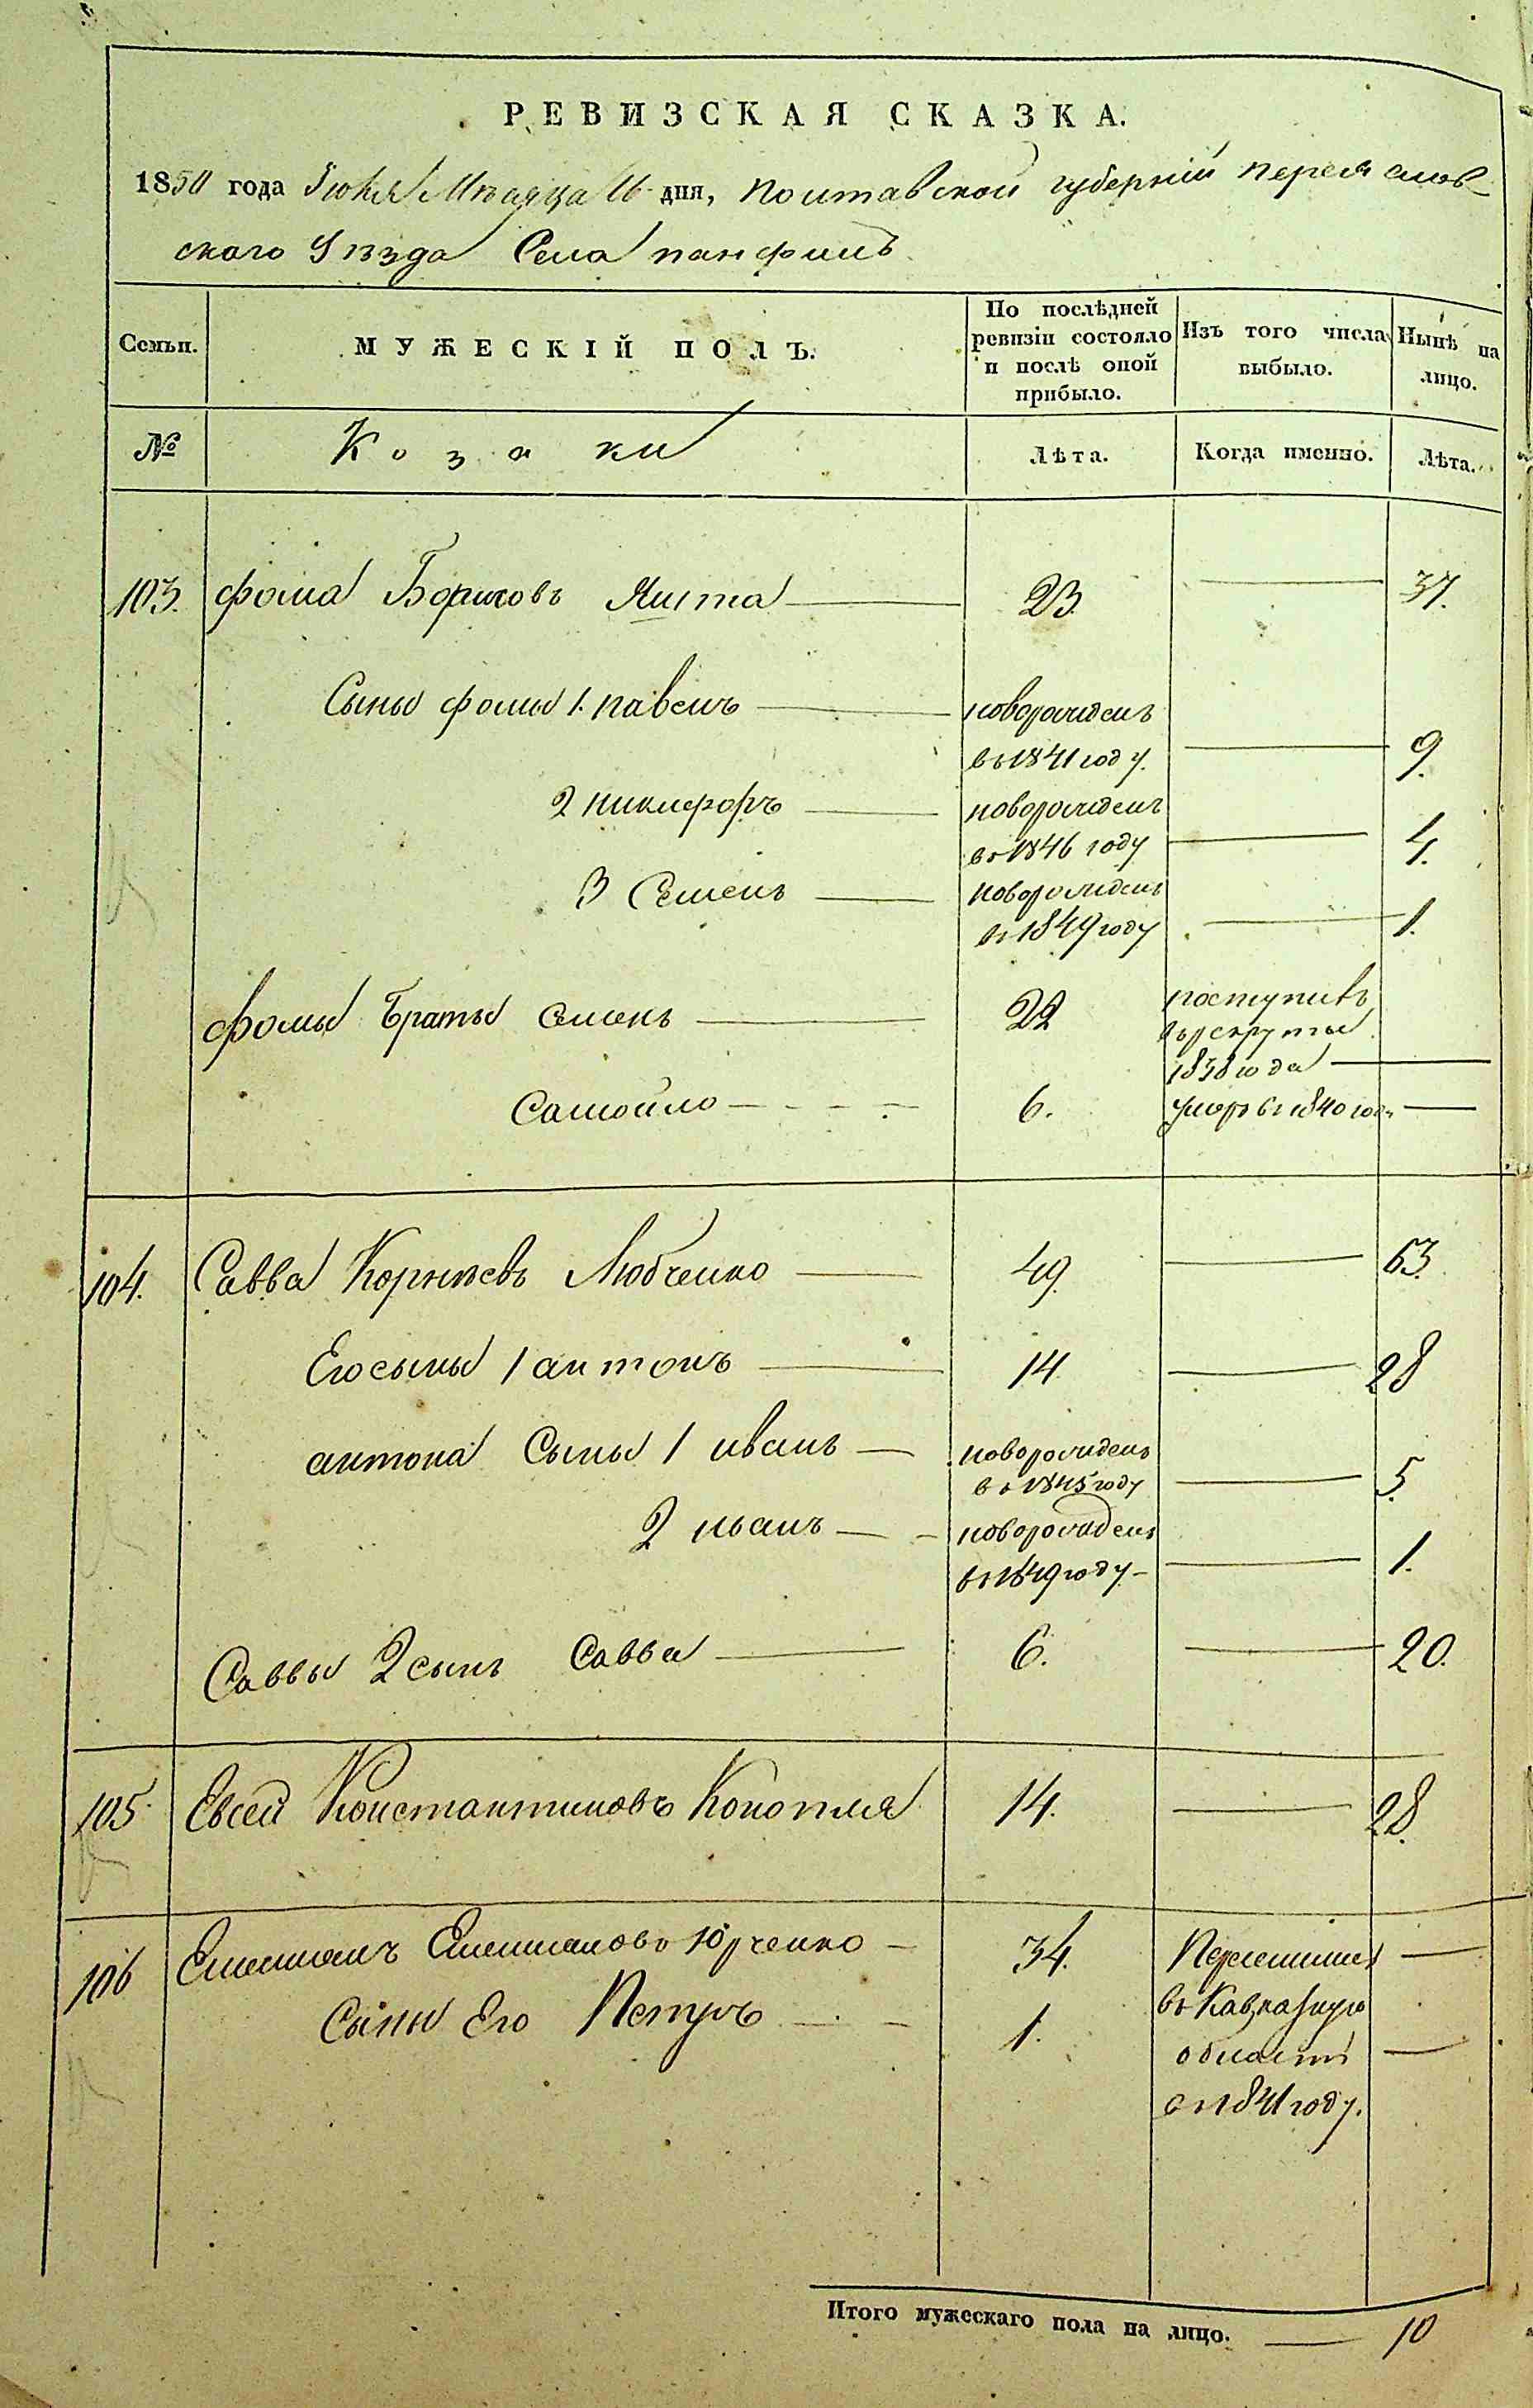 РЕВИЗСКАЯ СКАЗКА.
1850 года Июля Мѣсяца 16 дня, Полтавской губерніи Переяслов-
ского Уѣзда Села панфилъ
Семьи. МУЖЕСКІЙ ПОЛЪ. По послѣдней ревизіи состояло и послѣ оной прибыло. Изъ того числа выбыло. Нынѣ на лицо.
№ Козаки Лѣта. Когда именно. Лѣта.
103. фома Борисовъ 23 37.
Сыны фомы 1. павелъ новорожденъ
въ 1841 году. 9.
2 никифоръ новорожденъ
въ 1846 году 4.
3 Семенъ новорожденъ
въ 1849 году 1.
фомы Браты Семенъ 22 поступивъ
въ рекруты
1838 года
Самойло 6. умеръ въ 1840 году
104. Савва Корнѣевъ Любченко 49. 63.
Его сыны 1 антонъ 14 28
антона Сыны 1 иванъ новорожденъ
въ 1845 году 5.
2 иванъ новорожденъ
въ 1849 году 1.
Саввы 2 сынъ Савва 6. 20.
105. Евсей Константиновъ Конопля 14. 28.
106 Емельянъ Емельяновъ Юрченко 34. Переселились
Сыны Его Петръ 1. въ Кавказскую
области
въ 1841 году.
Итого мужескаго пола на лицо. 10